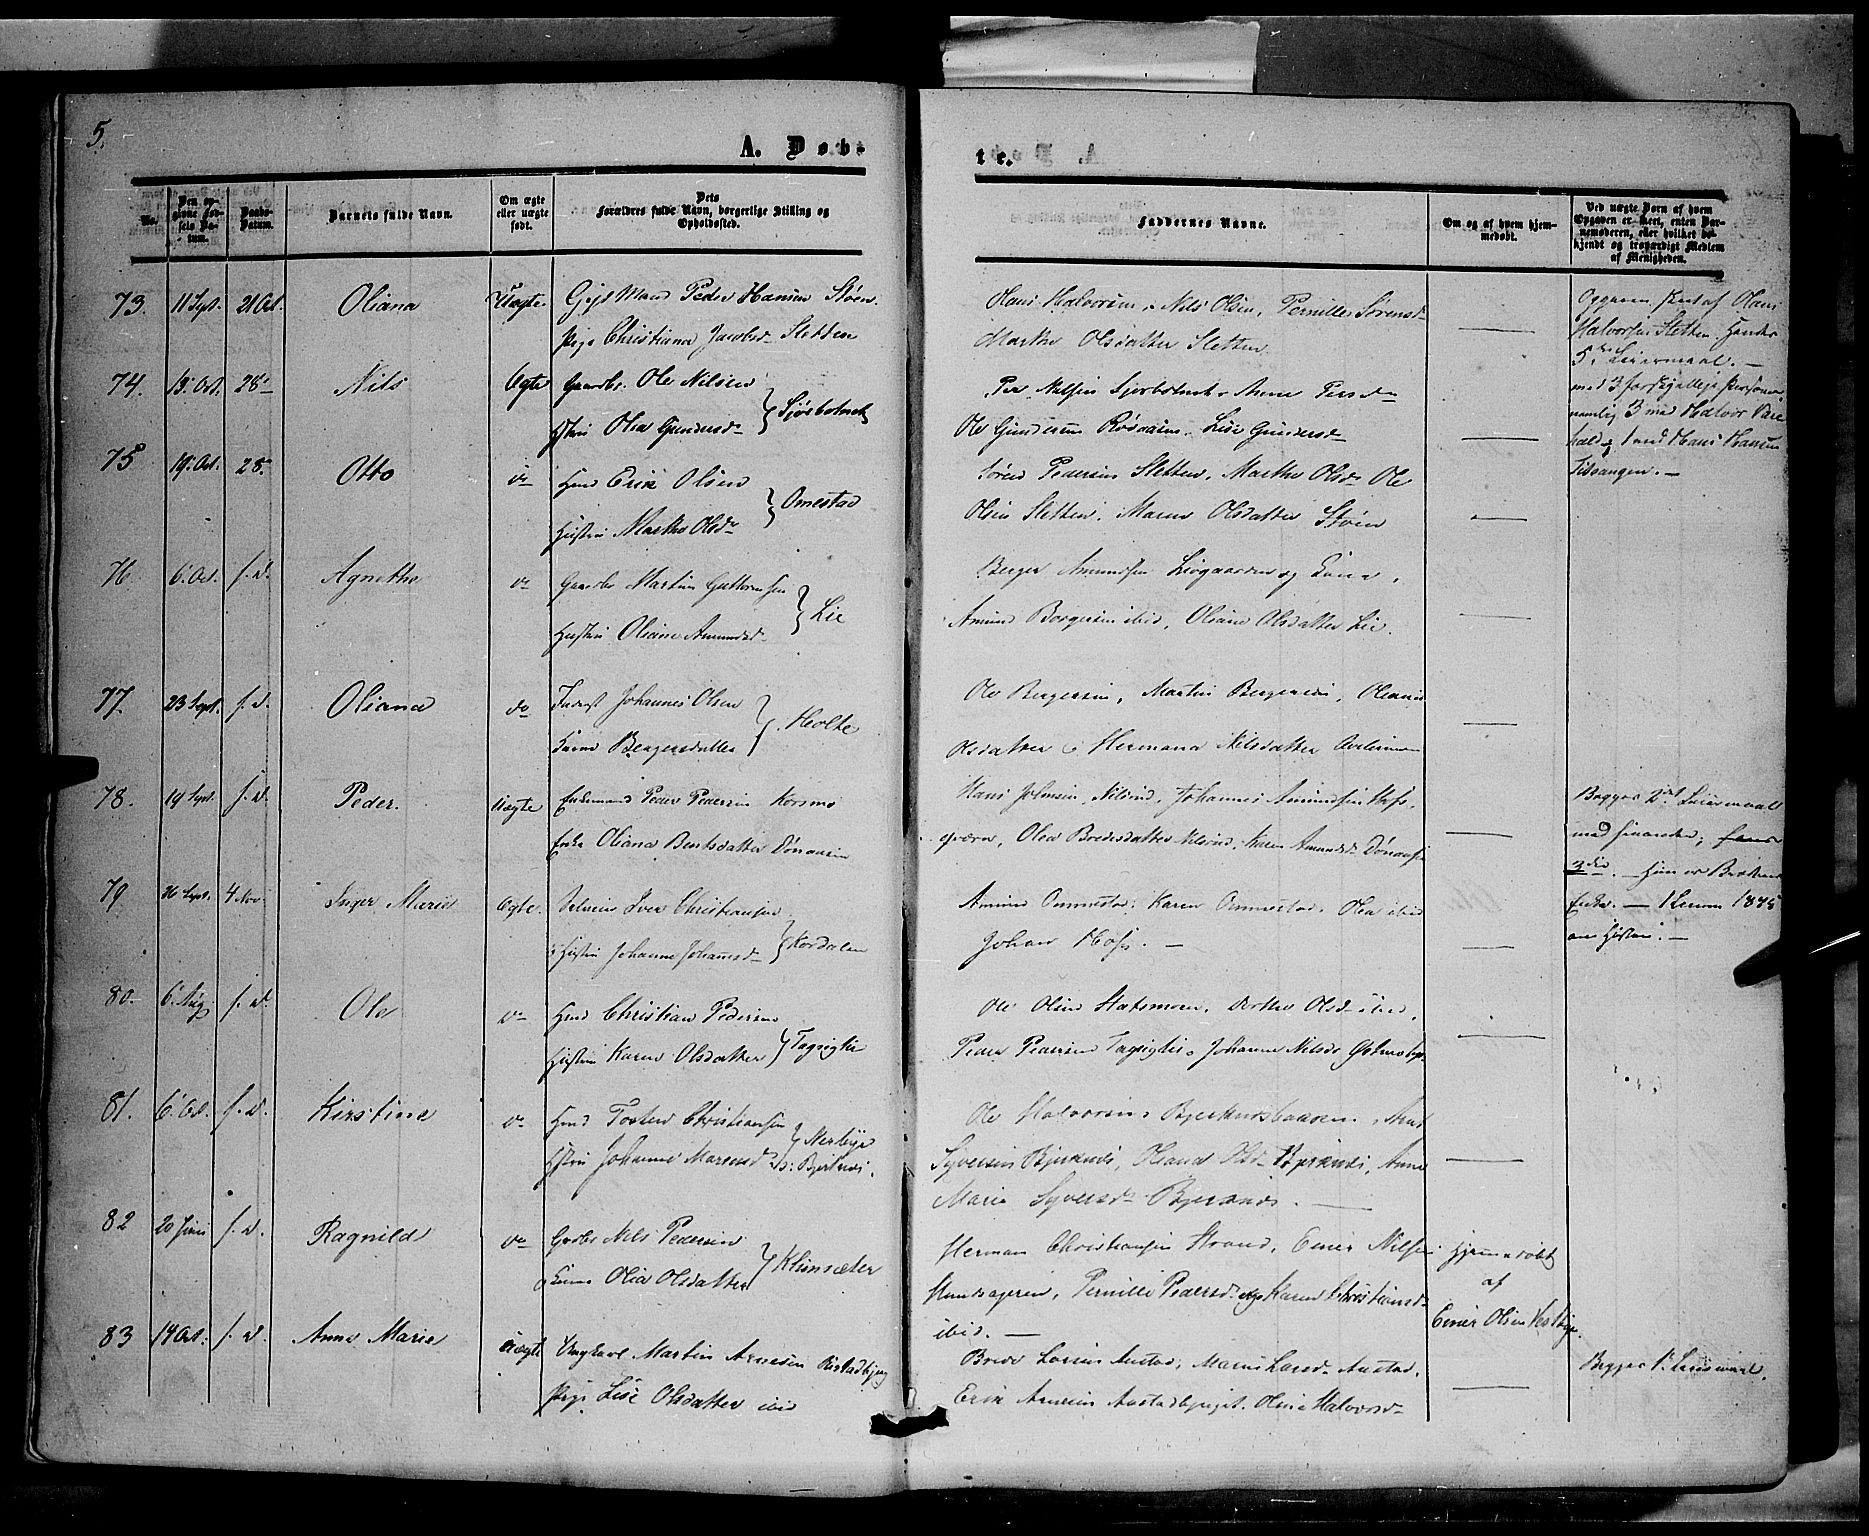 5.
A. Døb-
te.
No.
Den opgivne Fødsels Datum.
Daabs-Datum.
Barnets fulde Navn.
Om ægte eller uægte født.
Dets Forældres fulde Navn, borgerlige Stilling og Opholdssted.
Faddernes Navne.
Om og af hvem hjemmedøbt.
Ved uægte Born af hvem Opgaven er skeet, enten Barnemoderen, eller hvilket bekjendt og troværdigt Medlem af Menigheden.
73. 11 Sept. 21 Oct. Oliana Uægte Gift Mand Peder Hansen Støen
Pige Christiana Jacobsd Sletten
Hans Halvorsen, Nils Olsen, Pernille Sørensd
Marthe Olsdatter Sletten
Opgaven skeet af Hans
Halvorsen Sletten. Hendes
5te Leiermaal. —
med 3 forskjellige Personer
namlig 3 med Halvor
1 med Hans Hansen
74. 13. Oct. 28 Nils Ægte Gaardbr. Ole Nilsen
Hstru Olea Gundersd
Sjørbotnet
Per Nilsen Sjørbotnet, Anne Persd
Ole Gundersen Røsåsen, Lise Gundersd
75 19. Oct. 28 Otto do Hmd Erik Olsen
Hustru Marthe Olsd
Omestad
Søren Pedersen Sletten, Marthe Olsd Ole
Olsen Sletten, Maren Olsdatter Støen
76. 6. Oct. f. d. Agnethe do Gaardbr Martin Guttormsen
Hustru Oliane Amundsd
Lie
Berger Amundsen Liegaarden og Kone,
Amund Borgersen ibid, Oliane Olsdatter Lie.
77. 23 Sept. f. d. Oliana do Inderst Johannes Olsen
Karen Bergersdatter
Holte
Ole Bergersen, Martin Bergersen, Oleane
Olsdatter, Hermana Nilsdatter
78. 19 Sept. f. d. Peder. Uægte Enkemand Peder Pedersen Korsmo
Enke Oliana Berntsdatter Dønaasen
Hans Johnsen Nilsrud, Johannes Amundsen Hofs
qværn, Olea Bredesdatter Nilsrud, Karen Amundsd Dønaasen
Begges 2det Leiermaal
med hinanden;
3die. — Hun er
Enke. —
79 26 Sept. 4 Nov. Inger Marie Ægte. Iver Christiansen
Hustru Johanne Johannesd
Kordalen
Amund Ommestad, Karen Ommestad, Olea ibid
Johan Hofs. —
80. 6. Aug f. d. Ole do Hmd Christian Pedersen
Hustru Karen Olsdatter
Tagsigtie
Ole Olsen Statsmoen, Dorthe Olsd ibid,
Peder Pedersen Tagsigtie, Johanne Nilsd Østmoby
81. 6. Oct. f. d. Kirstine do Hmd Tosten Christiansen
Hstru Johanne Marensd
Nerbye
Ole Halvorsen, Bjerknesbaasen,
Syversen Bjerknes, Oleana Olsd Bjerknes, Anne
Marie Syversd Bjerknes. —
82 20 Juni f. d. Ragnild do Grdbr Nils Pedersen
Kone Olea Olsdatter
Klemsæter
Herman Christiansen Strand, Einer Nilsen
Hundsageren, Pernille Pedersd og Karen Christiansd
ibid. —
Hjemmedøbt
af
Einer Olsen Vestbye
83 14 Oct. f. d. Anne Marie Uægte Ungkarl Martin Arnesen Austadbjerg
Pige Lise Olsdatter ibid
Brede Larsen Austad, Maria Larsd Austad.
Erik Arnesen Austadbjerget. Oline Halvorsd
Begges 1. Leiermaal.